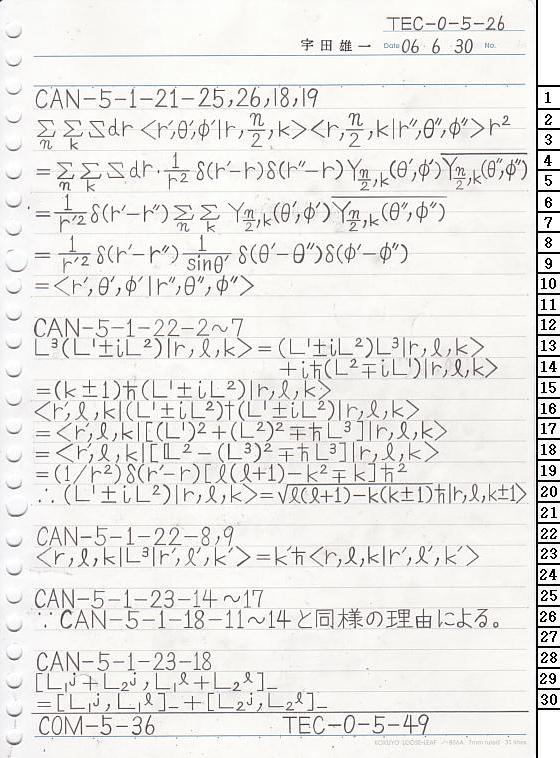 TEC-0-5-26
宇田雄一 Date 06 6 30 No.
CAN-5-1-21-25,26,18,19
∑n ∑k Sdr <r',θ',φ'|r, n/2, k><r, n/2, k|r'',θ'',φ''>r²
=∑n ∑k Sdr・1/r² δ(r'-r)δ(r''-r)Yn/2,k(θ',φ')\overline{Yn/2,k(θ'',φ'')}
=1/r'² δ(r'-r'')∑n ∑k Yn/2,k(θ',φ')\overline{Yn/2,k(θ'',φ'')}
=1/r'² δ(r'-r'') 1/sinθ' δ(θ'-θ'')δ(φ'-φ'')
=<r',θ',φ'|r'',θ'',φ''>
CAN-5-1-22-2~7
L³(L¹±iL²)|r,ℓ,k>=(L¹±iL²)L³|r,ℓ,k>
+iħ(L²∓iL¹)|r,ℓ,k>
=(k±1)ħ(L¹±iL²)|r,ℓ,k>
<r',ℓ,k|(L¹±iL²)†(L¹±iL²)|r,ℓ,k>
=<r',ℓ,k|[(L¹)²+(L²)²∓ħL³]|r,ℓ,k>
=<r',ℓ,k|[𝕃²-(L³)²∓ħL³]|r,ℓ,k>
=(1/r²)δ(r'-r)[ℓ(ℓ+1)-k²∓k]ħ²
∴(L¹±iL²)|r,ℓ,k>=√ℓ(ℓ+1)-k(k±1)ħ|r,ℓ,k±1>
CAN-5-1-22-8,9
<r,ℓ,k|L³|r',ℓ',k'>=k'ħ<r,ℓ,k|r',ℓ',k'>
CAN-5-1-23-14~17
∵CAN-5-1-18-11~14と同様の理由による。
CAN-5-1-23-18
[L₁ʲ+L₂ʲ,L₁ˡ+L₂ˡ]₋
=[L₁ʲ,L₁ˡ]₋+[L₂ʲ,L₂ˡ]₋
COM-5-36 TEC-0-5-49
KOKUYO LOOSE-LEAF ノ-836A 7mm ruled 31 lines
1
2
3
4
5
6
7
8
9
10
11
12
13
14
15
16
17
18
19
20
21
22
23
24
25
26
27
28
29
30